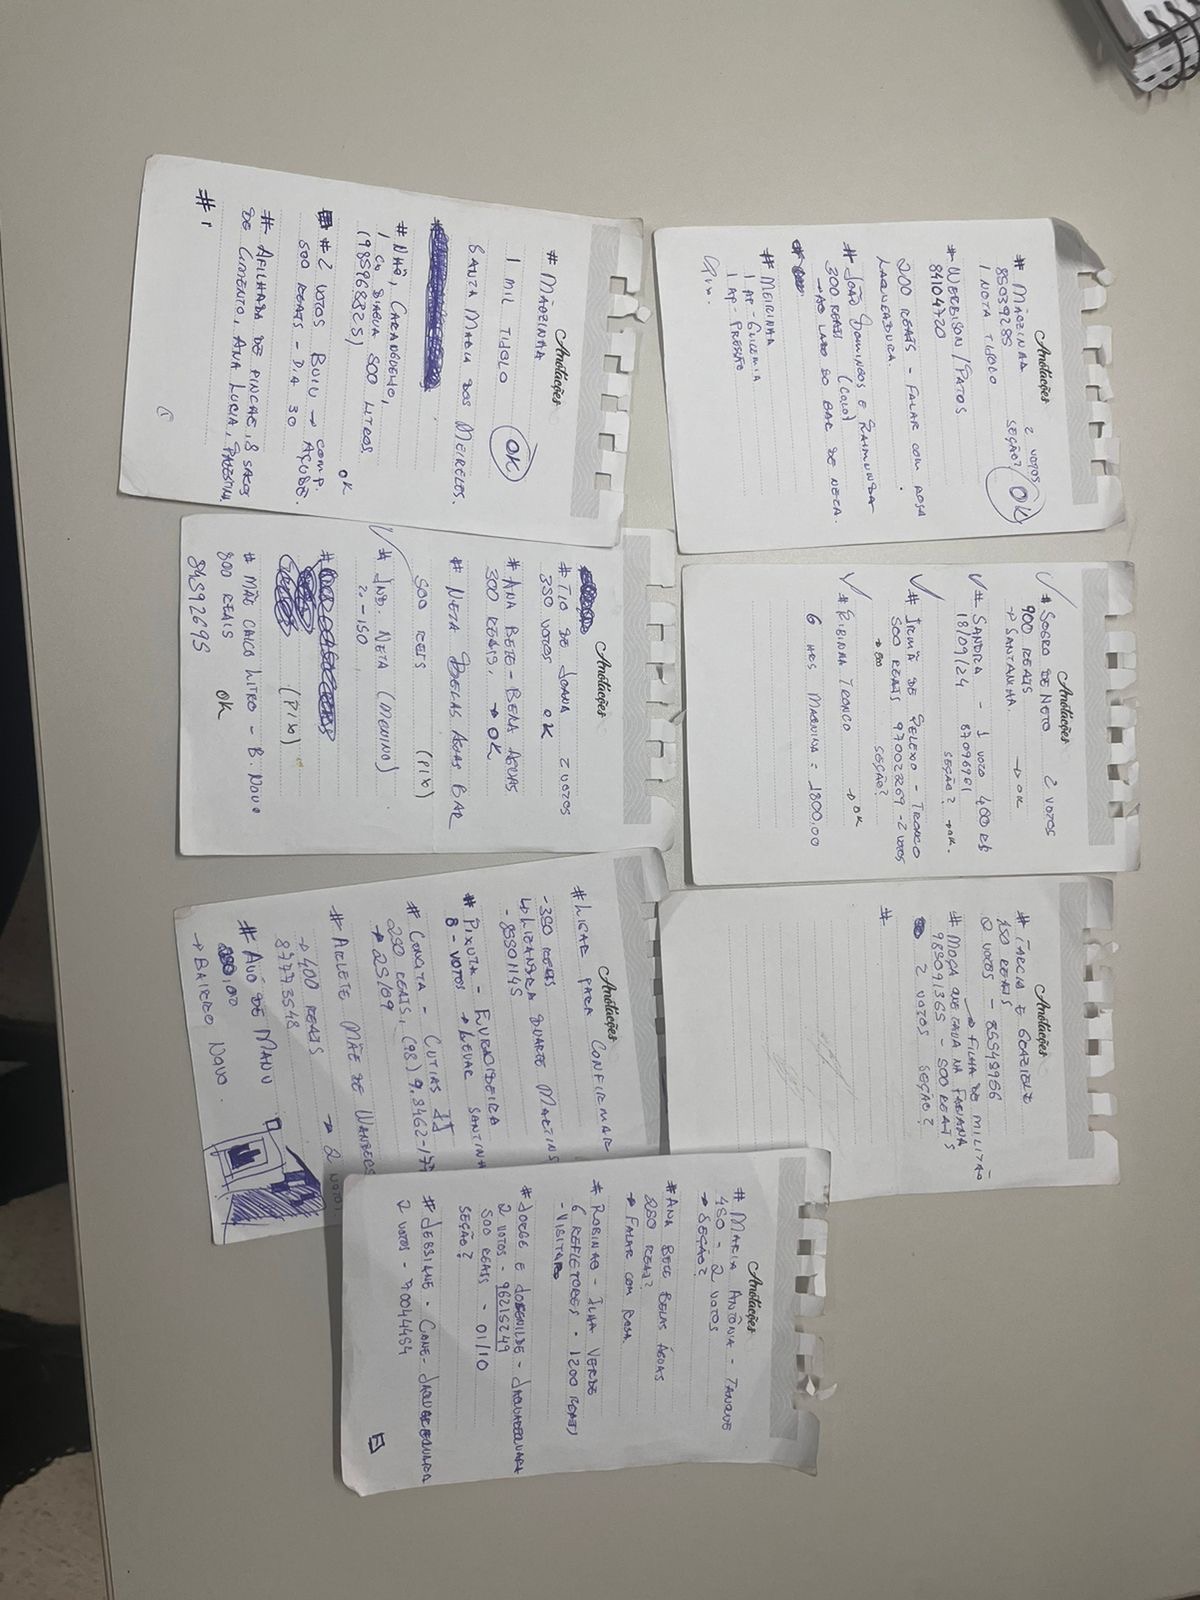 Anotações
# Mãozinha
1 mil tijolo OK
Santa Maria dos Meireles.
# Nhô, Carangueijo,
1 cx d'agua 500 litros
(985968325) OK
# 2 votos Buiu → comp.
500 reais - Dia 30 Açude.
# Afilhada de Pinche, 8 sacos
de cimento, Ana Lucia,
#
Anotações
# Mãozinha 2 votos
85039285 seção?
1 nota tijolo OK
# Werbison/Patos
84104720
200 reais - Falar com Rosa
Laqueadura.
# João Domingos e Raimunda
300 reais (Calo)
→ Ao lado do bar de Neta.
# Meirinha
1 Ap - Glicemia
1 Ap - Pressão
Anotações
# Tio de Joana 2 votos
350 votos OK
# Ana Bete - Belas Aguas
300 reais. → OK
# Neta Belas Aguas Bar
500 reis (Pix)
# Ind. Neta (Menino)
- 150
(Pix)
# Mão Calco Litro - B. Novo
800 reais OK
84592695
Anotações
# Sogro de Neto 2 votos
900 reais
→ Santanha. → OK
# Sandra - 1 voto 400 R$
18/09/24 87096961
seção? → OK.
# Irmã de Selexo - Tronco
500 reais 970023269 - 2 votos
seção?
# Ribinha Tronco → OK
6 hrs Maquina = 1800,00
Anotações
# Ligar para confirmar
- 350 reais
↳ Lizandra Duarte Martins
- 85301145
# Pixuta - Euradideira
8 - votos → Levar santinh
# Congata - Cutias II
250 reais, (98) 9.8462-177
→ 25/09
# Arlete Mãe de Wanders
→ 400 reais → 2 votos
87773548
# Avó de Manu
→ Bairro Novo.
Anotações
# Tarcia e Graziele
150 reais
2 votos - 85548966
→ Filha de Militão
# Moça que cava na Fabiana
985091365 - 500 reais
2 votos seção?
#
Anotações
# Maria Antônia - Tanque
450 - 2 votos
→ Seção?
# Ana Bete Belas Águas
250 reais?
→ Falar com Rosa.
# Robinho - Ilha Verde
6 refletores - 1200 reais
- Visitar
# Jorge e Josenilde - Jaquarequara
2 votos - 96215249
500 reais - 01/10
seção?
# Jessiane - Cone - Jaquarequara
2 votos - 70044454